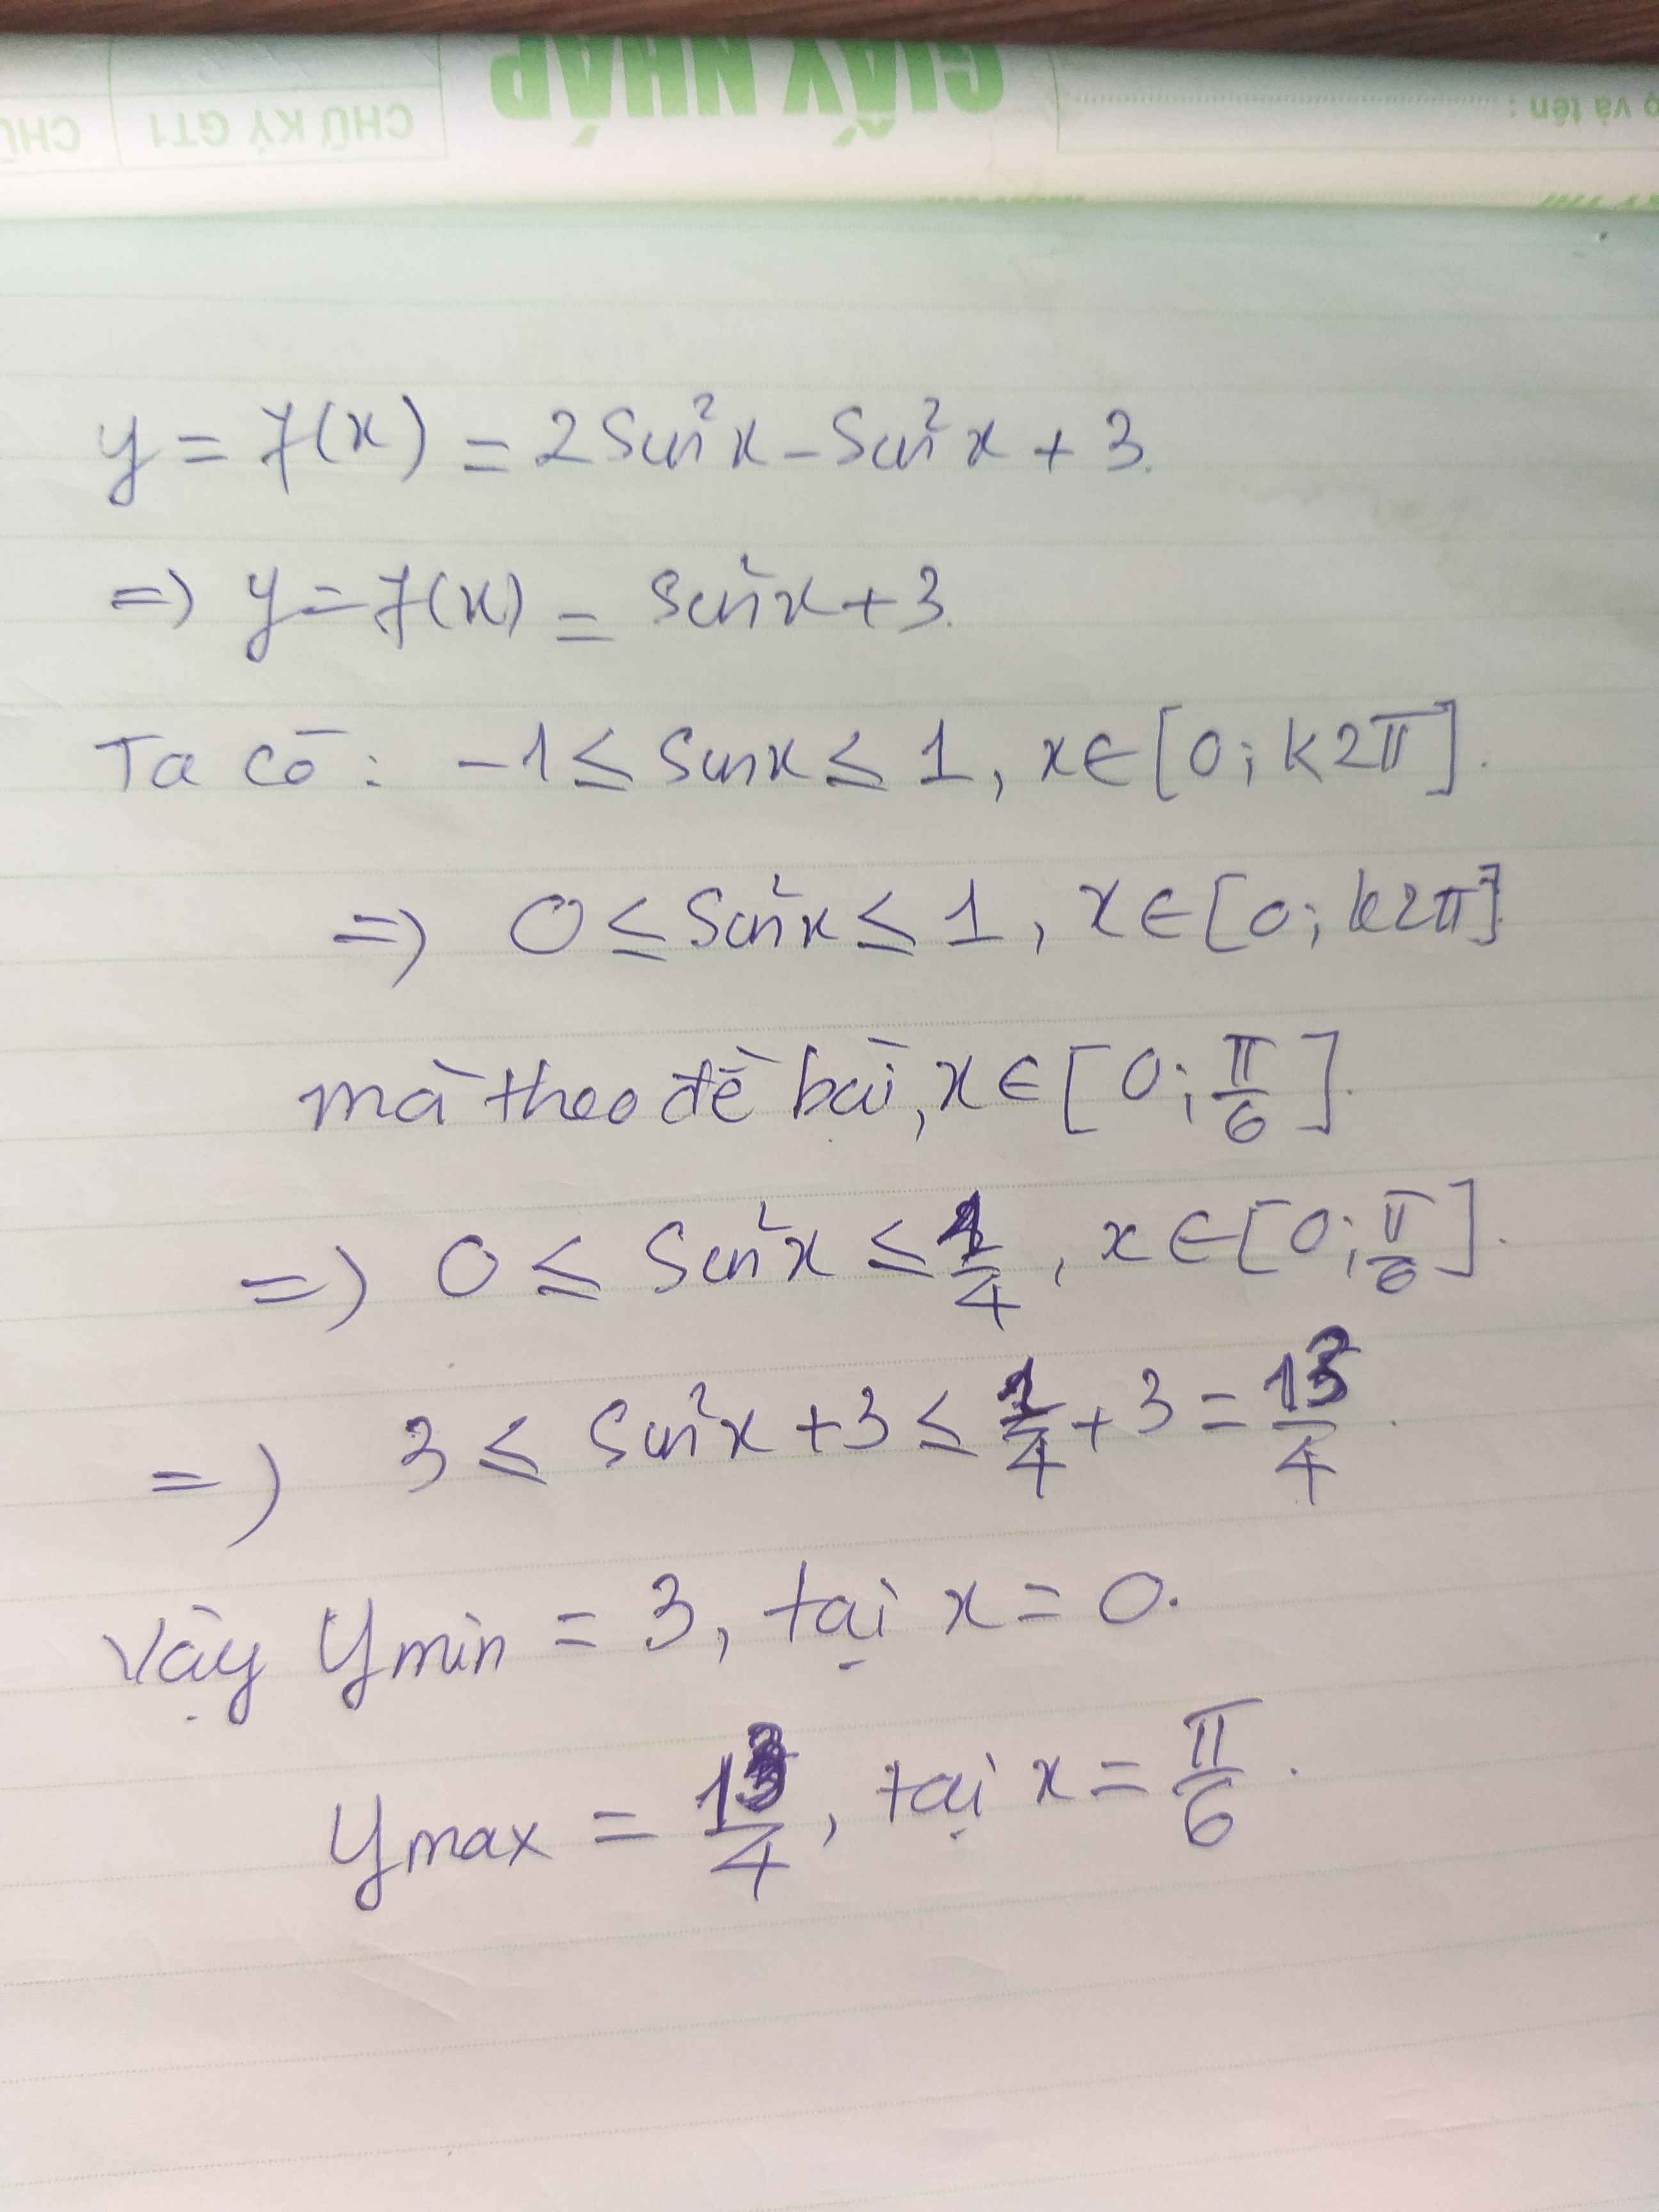 GIẤY NHÁP
ọ và tên :
CHỮ KÝ GT1
CHỮ
y = f(x) = 2 Sin²x - Sin²x + 3.
=> y = f(x) = sin²x + 3.
Ta có : -1 ≤ Sinx ≤ 1, x ∈ [0; k2π].
=> 0 ≤ Sin²x ≤ 1, x ∈ [0; k2π]
mà theo đề bài, x ∈ [0; π/6].
=> 0 ≤ Sin²x ≤ 1/4, x ∈ [0; π/6].
=> 3 ≤ Sin²x + 3 ≤ 1/4 + 3 = 13/4.
Vậy ymin = 3, tại x = 0.
ymax = 13/4, tại x = π/6.